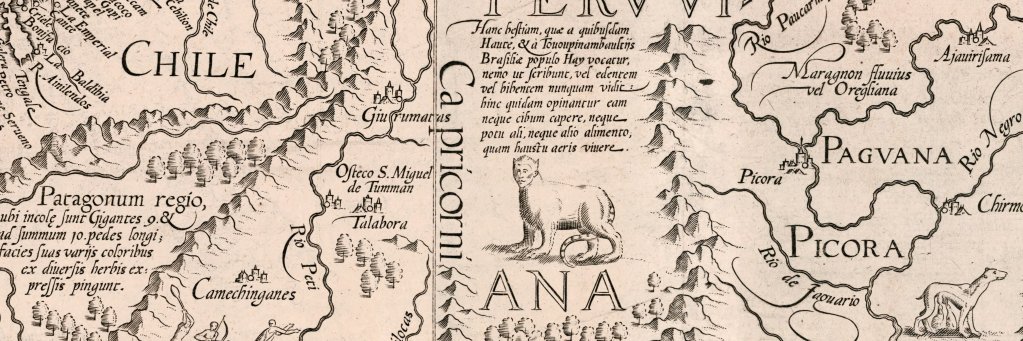 de Chile
Chilon
Imperial
La Baldibia
R. Ainilendos
Tengale
Serueno
CHILE
Patagonum regio,
ubi incolę sunt Gigantes 9. &
ad summum 10. pedes longi;
facies suas varijs coloribus
ex diversis herbis ex:
pressis pingunt.
Camechinganes
Osteco S. Miguel
de Tumman
Talabora
Rio Peti
Giurrumatas
Capricorni
PERVVI
ANA
Hanc bestiam, quæ a quibusdam
Haute, & a Tououpinambaultijs
Brasiliæ populo Hay vocatur,
nemo ut scribunt, vel edentem
vel bibentem nunquam vidit:
hinc quidam opinantur eam
neque cibum capere, neque
potu ali, neque alio alimento,
quam haustu aeris vivere.
Rio Paucarm
Maragnon fluuius
vel Oregliana
Ajauirisama
PAGVANA
Rio Negro
Picora
PICORA
Chirmo
Rio de Jaouario